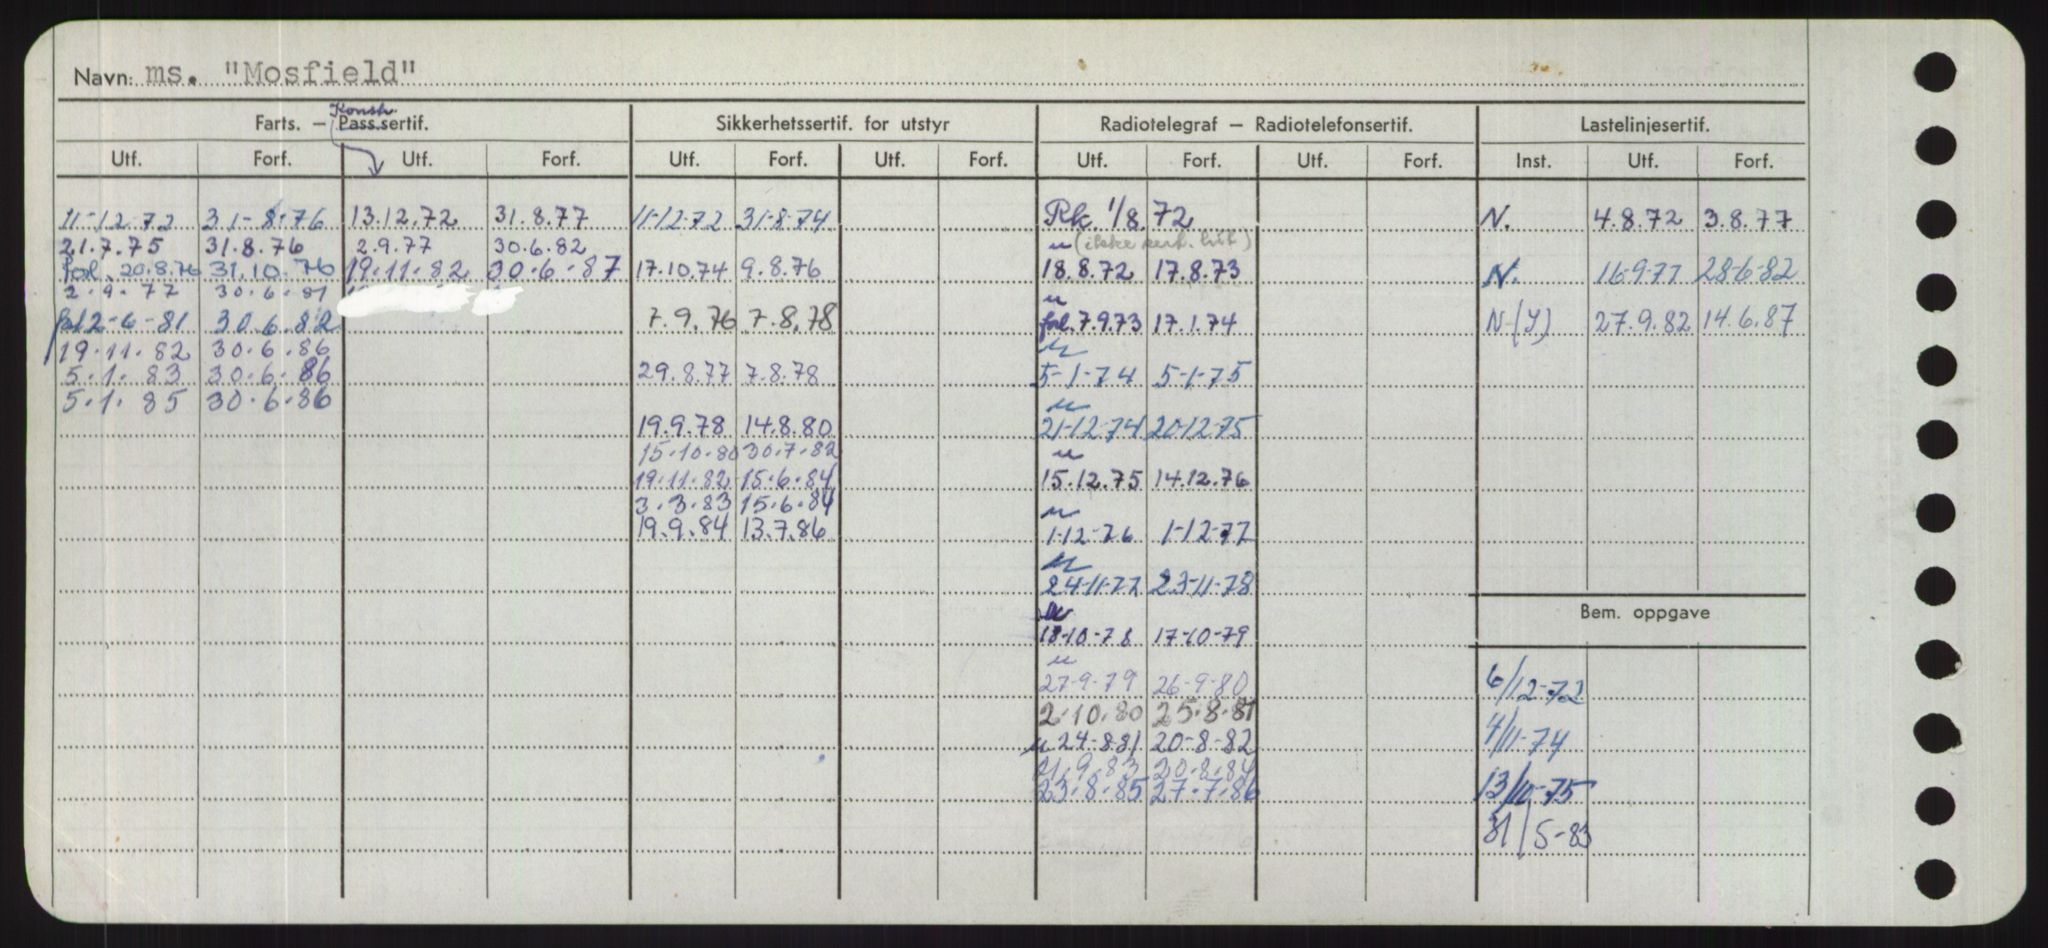 Navn: ms. "Mosfield"
Konstr.
Farts. — Pass.sertif. Sikkerhetssertif. for utstyr Radiotelegraf — Radiotelefonsertif. Lastelinjesertif.
Utf. Forf. Utf. Forf. Utf. Forf. Utf. Forf. Utf. Forf. Utf. Forf. Inst. Utf. Forf.
11-12-72 31-8-76 13.12.72 31.8.77 11-12-72 31-8-74 Rk 1/8.72 N. 4.8.72 3.8.77
21.7.75 31.8.76 2.9.77 30.6.82 u (ikke sert.
forl. 20.8.76 31.10.76 19.11.82 30.6.87 17.10.74 9.8.76 18.8.72 17.8.73 N. 16-9-77 28-6-82
2-9-77 30-6-81 u
forl 2-6-81 30.6.82 7.9.76 7-8.78 forl. 7.9.73 17.1.74 N-(Y) 27.9.82 14.6.87
19.11.82 30.6.86 u
5.1.83 30.6.86 29.8.77 7.8.78 5-1-74 5-1-75
5.1.85 30.6.86 u
19.9.78 14.8.80 21-12-74 20-12-75
15.10.80 30.7.82 u
19.11.82 15.6.84 15.12.75 14.12.76
3.3.83 15.6.84 u
19.9.84 13.7.86 1-12-76 1-12-77
u
24-11-77 23-11-78
Bem. oppgave
u
18-10-78 17-10-79
u
27-9-79 26-9-80 6/12-72
2.10.80 25.8.81
u 24-8-81 20-8-82 4/11-74
21.9.83 20.8.84
23.8.85 27.7.86 13/10-75
31/5-83